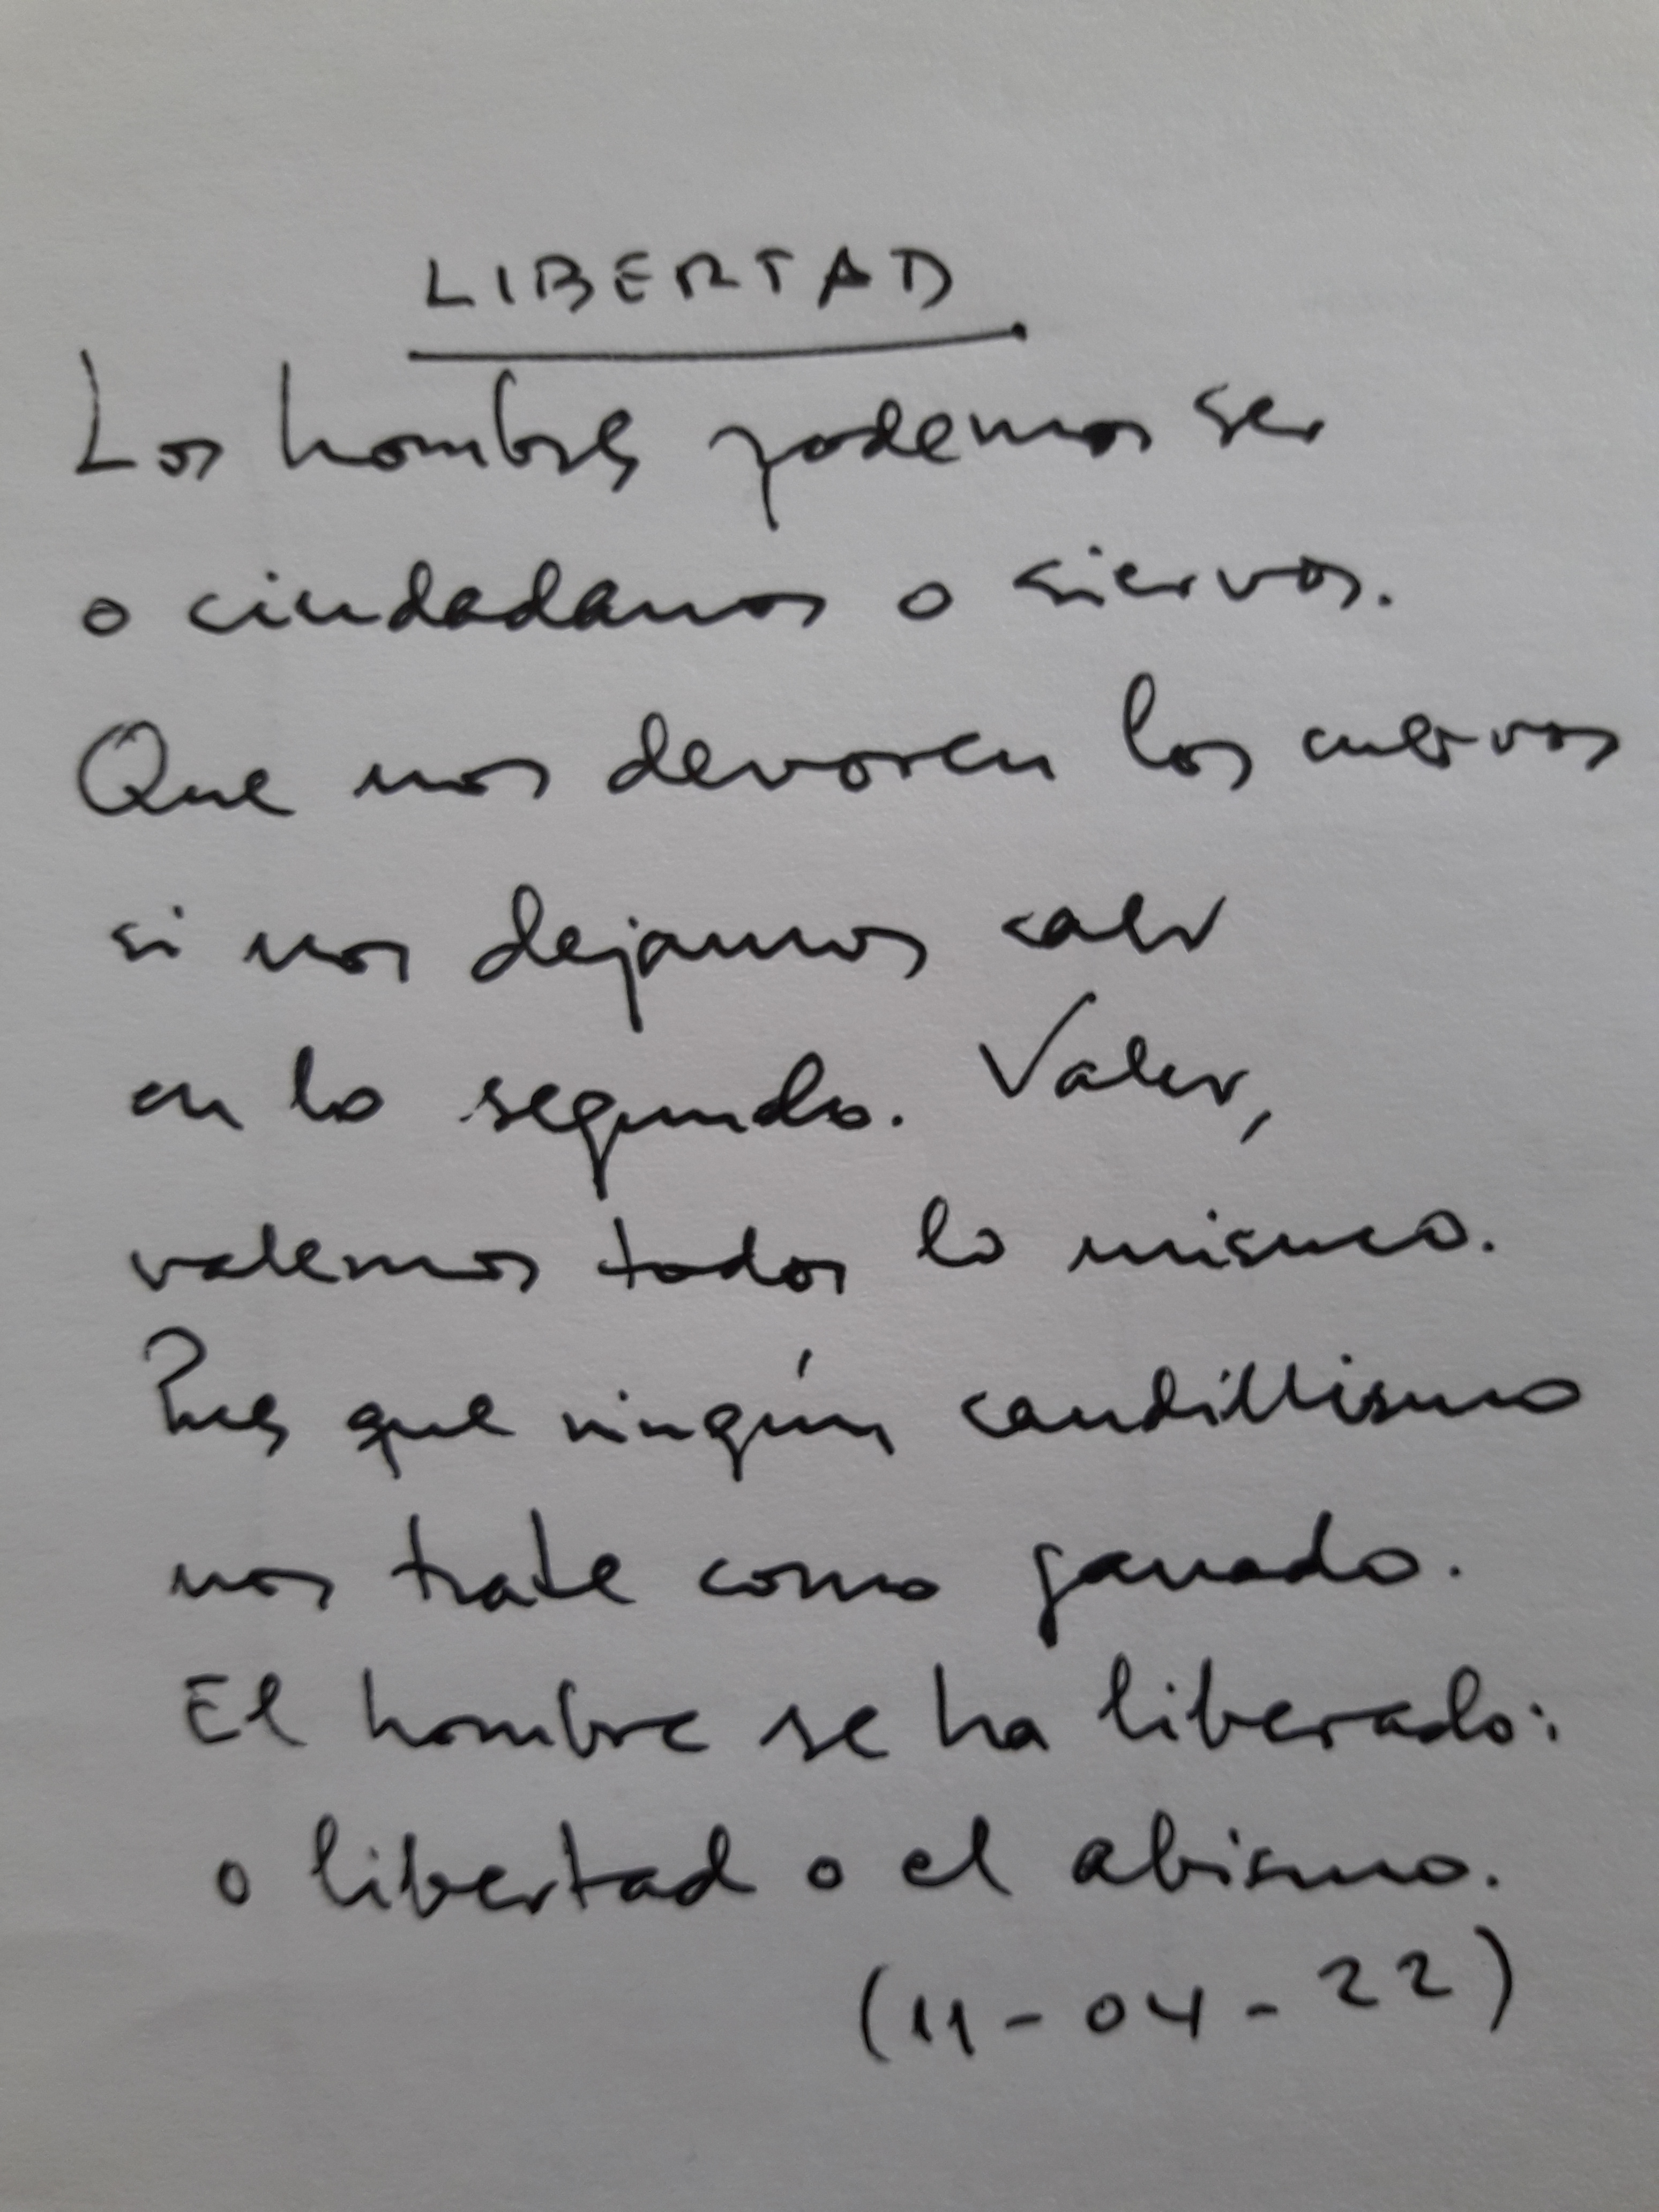 LIBERTAD
Los hombres podemos ser
o ciudadanos o siervos.
Que nos devoren los cuervos
si nos dejamos caer
en lo segundo. Valer,
valemos todos lo mismo.
Pues que ningún caudillismo
nos trate como ganado.
El hombre se ha liberado:
o libertad o el abismo.
(11-04-22)